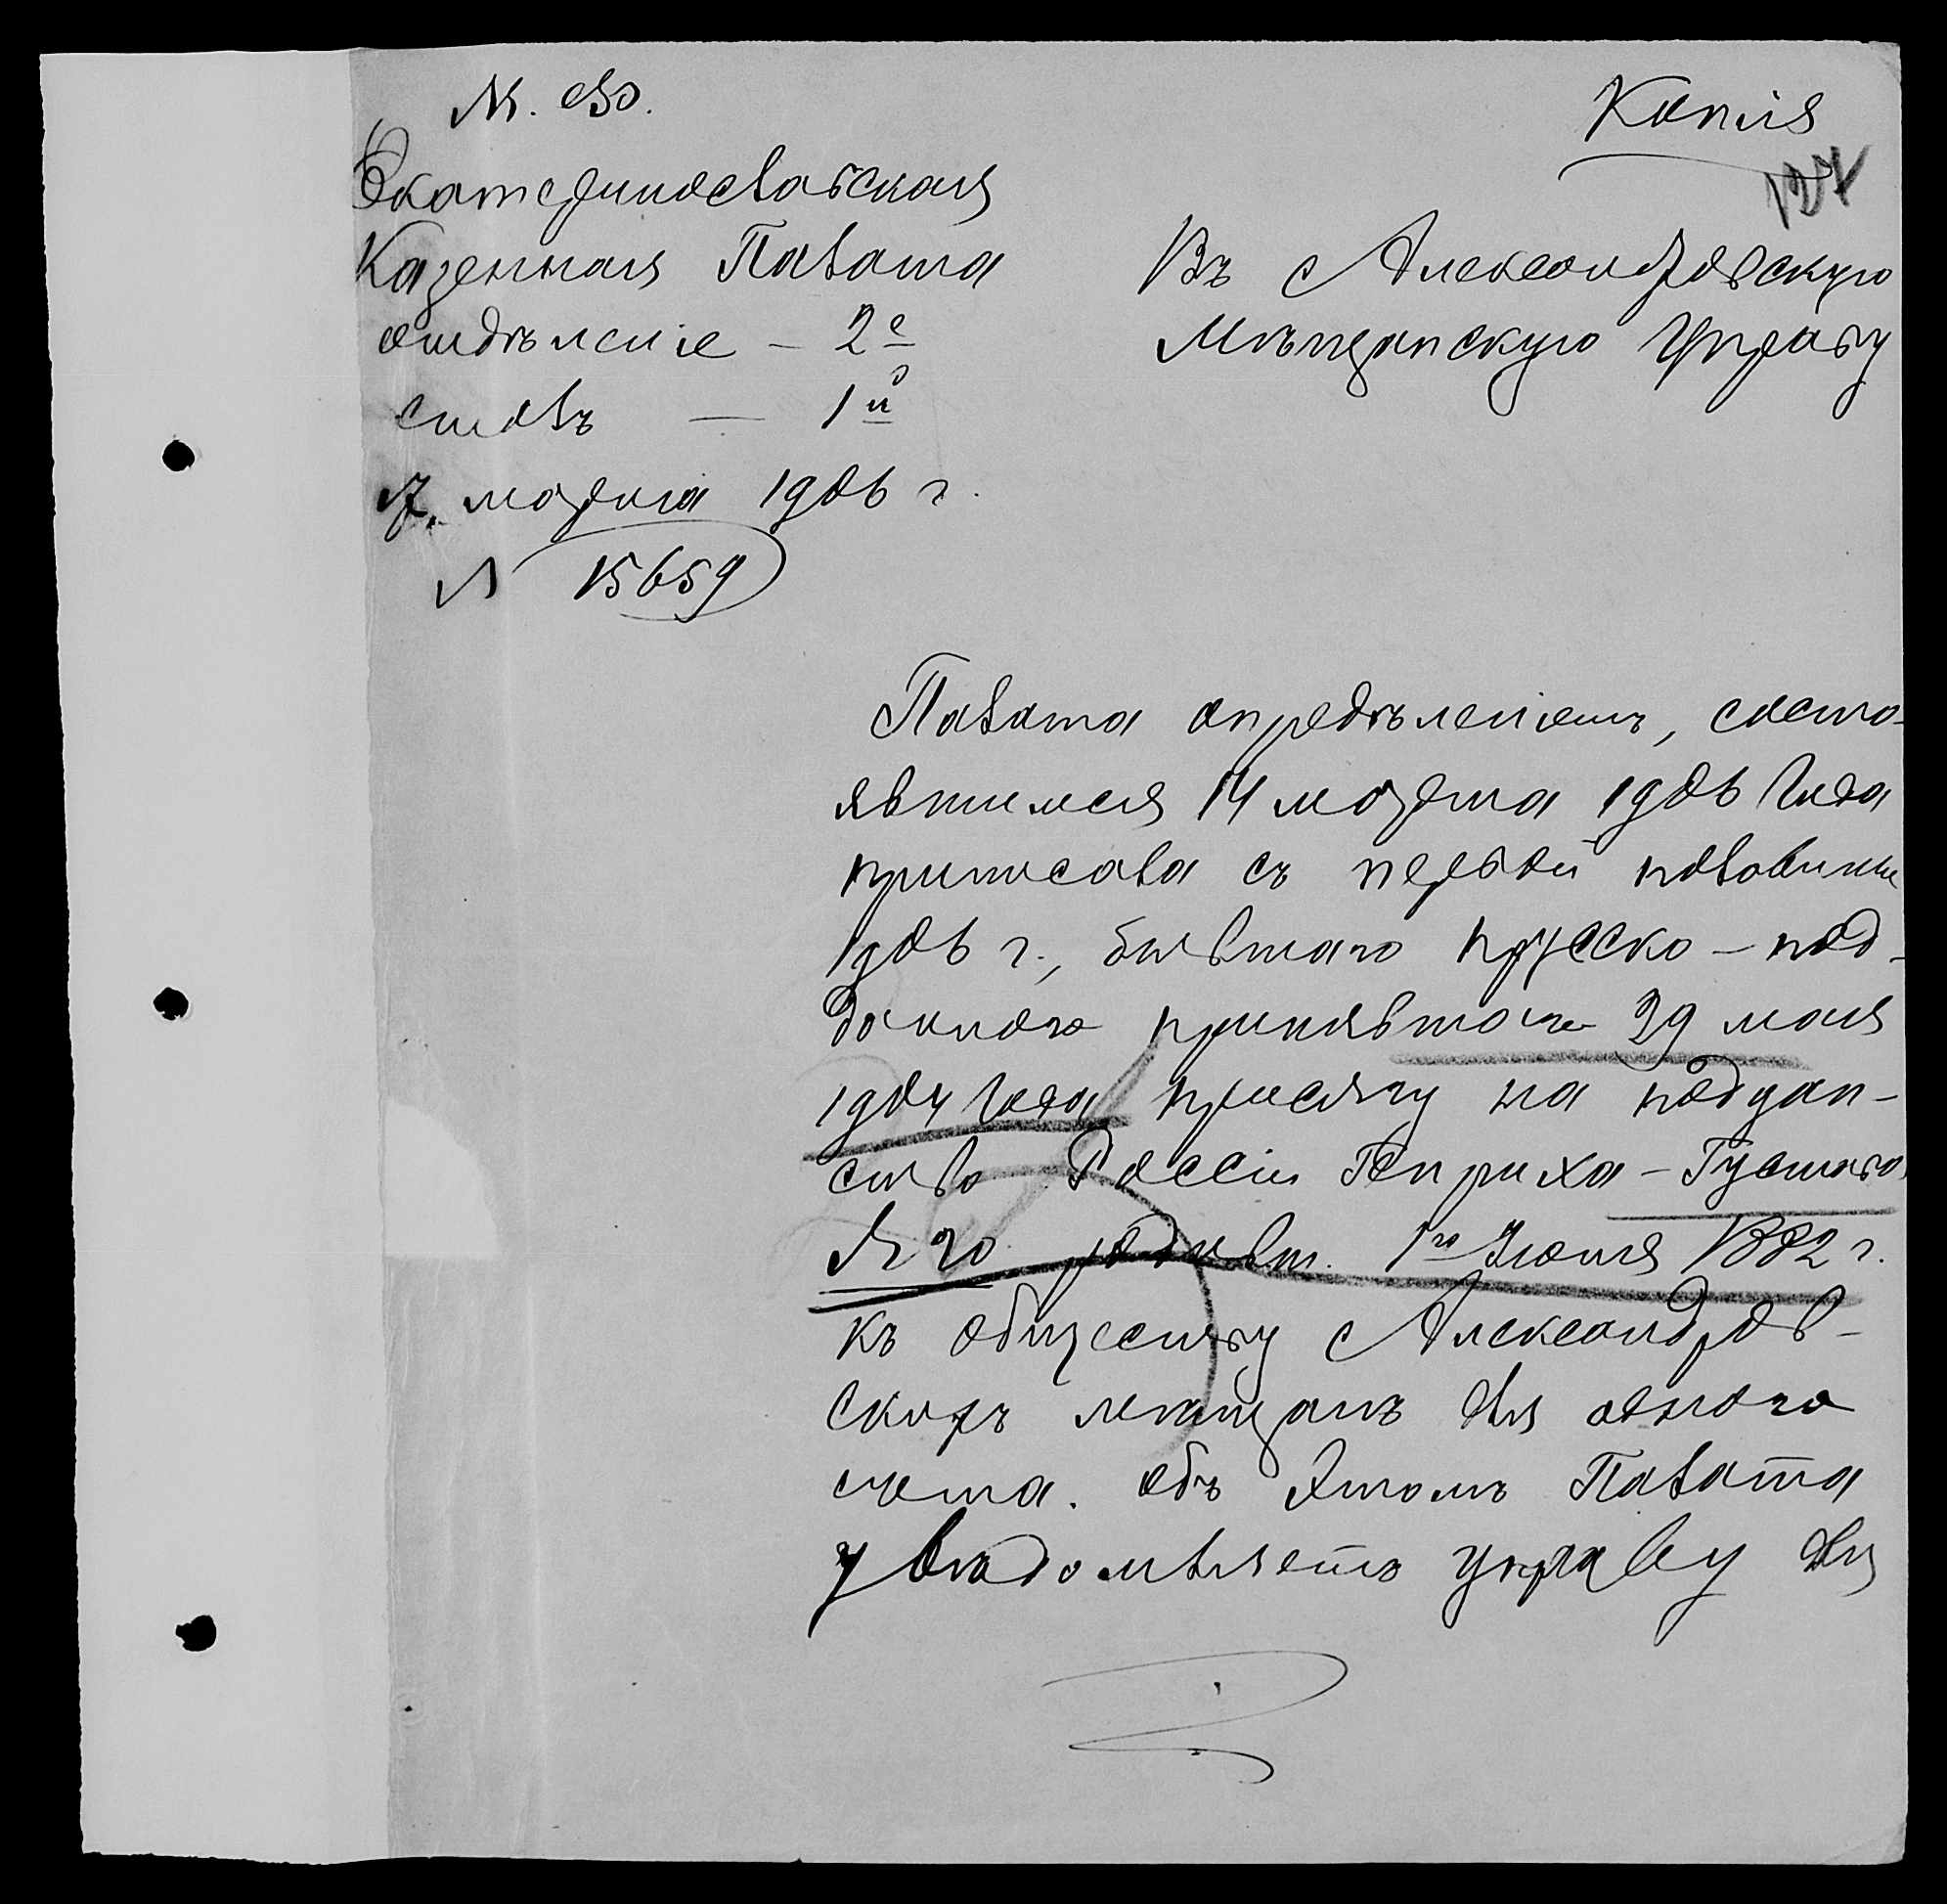 М. Ф.
Копія
127
Екатеринославская
Казенная Палата
отдѣленіе – 2е
столъ — 1й
17 марта 1906 г.
№ 15659
Въ Александровскую
Мѣщанскую Управу
Палата опредѣленіемъ, состо-
явшимся 14 марта 1906 года
приписала съ первой половины
1906 г., бывшаго прусско-под-
даннаго принявшаго 29 мая
1904 года присягу на поддан-
ство Россіи Генриха-Густава
родивш. 1го Іюля 1882 г.
къ обществу Александров-
скихъ мѣщанъ для одного
счета. Объ этомъ Палата
увѣдомляетъ управу для